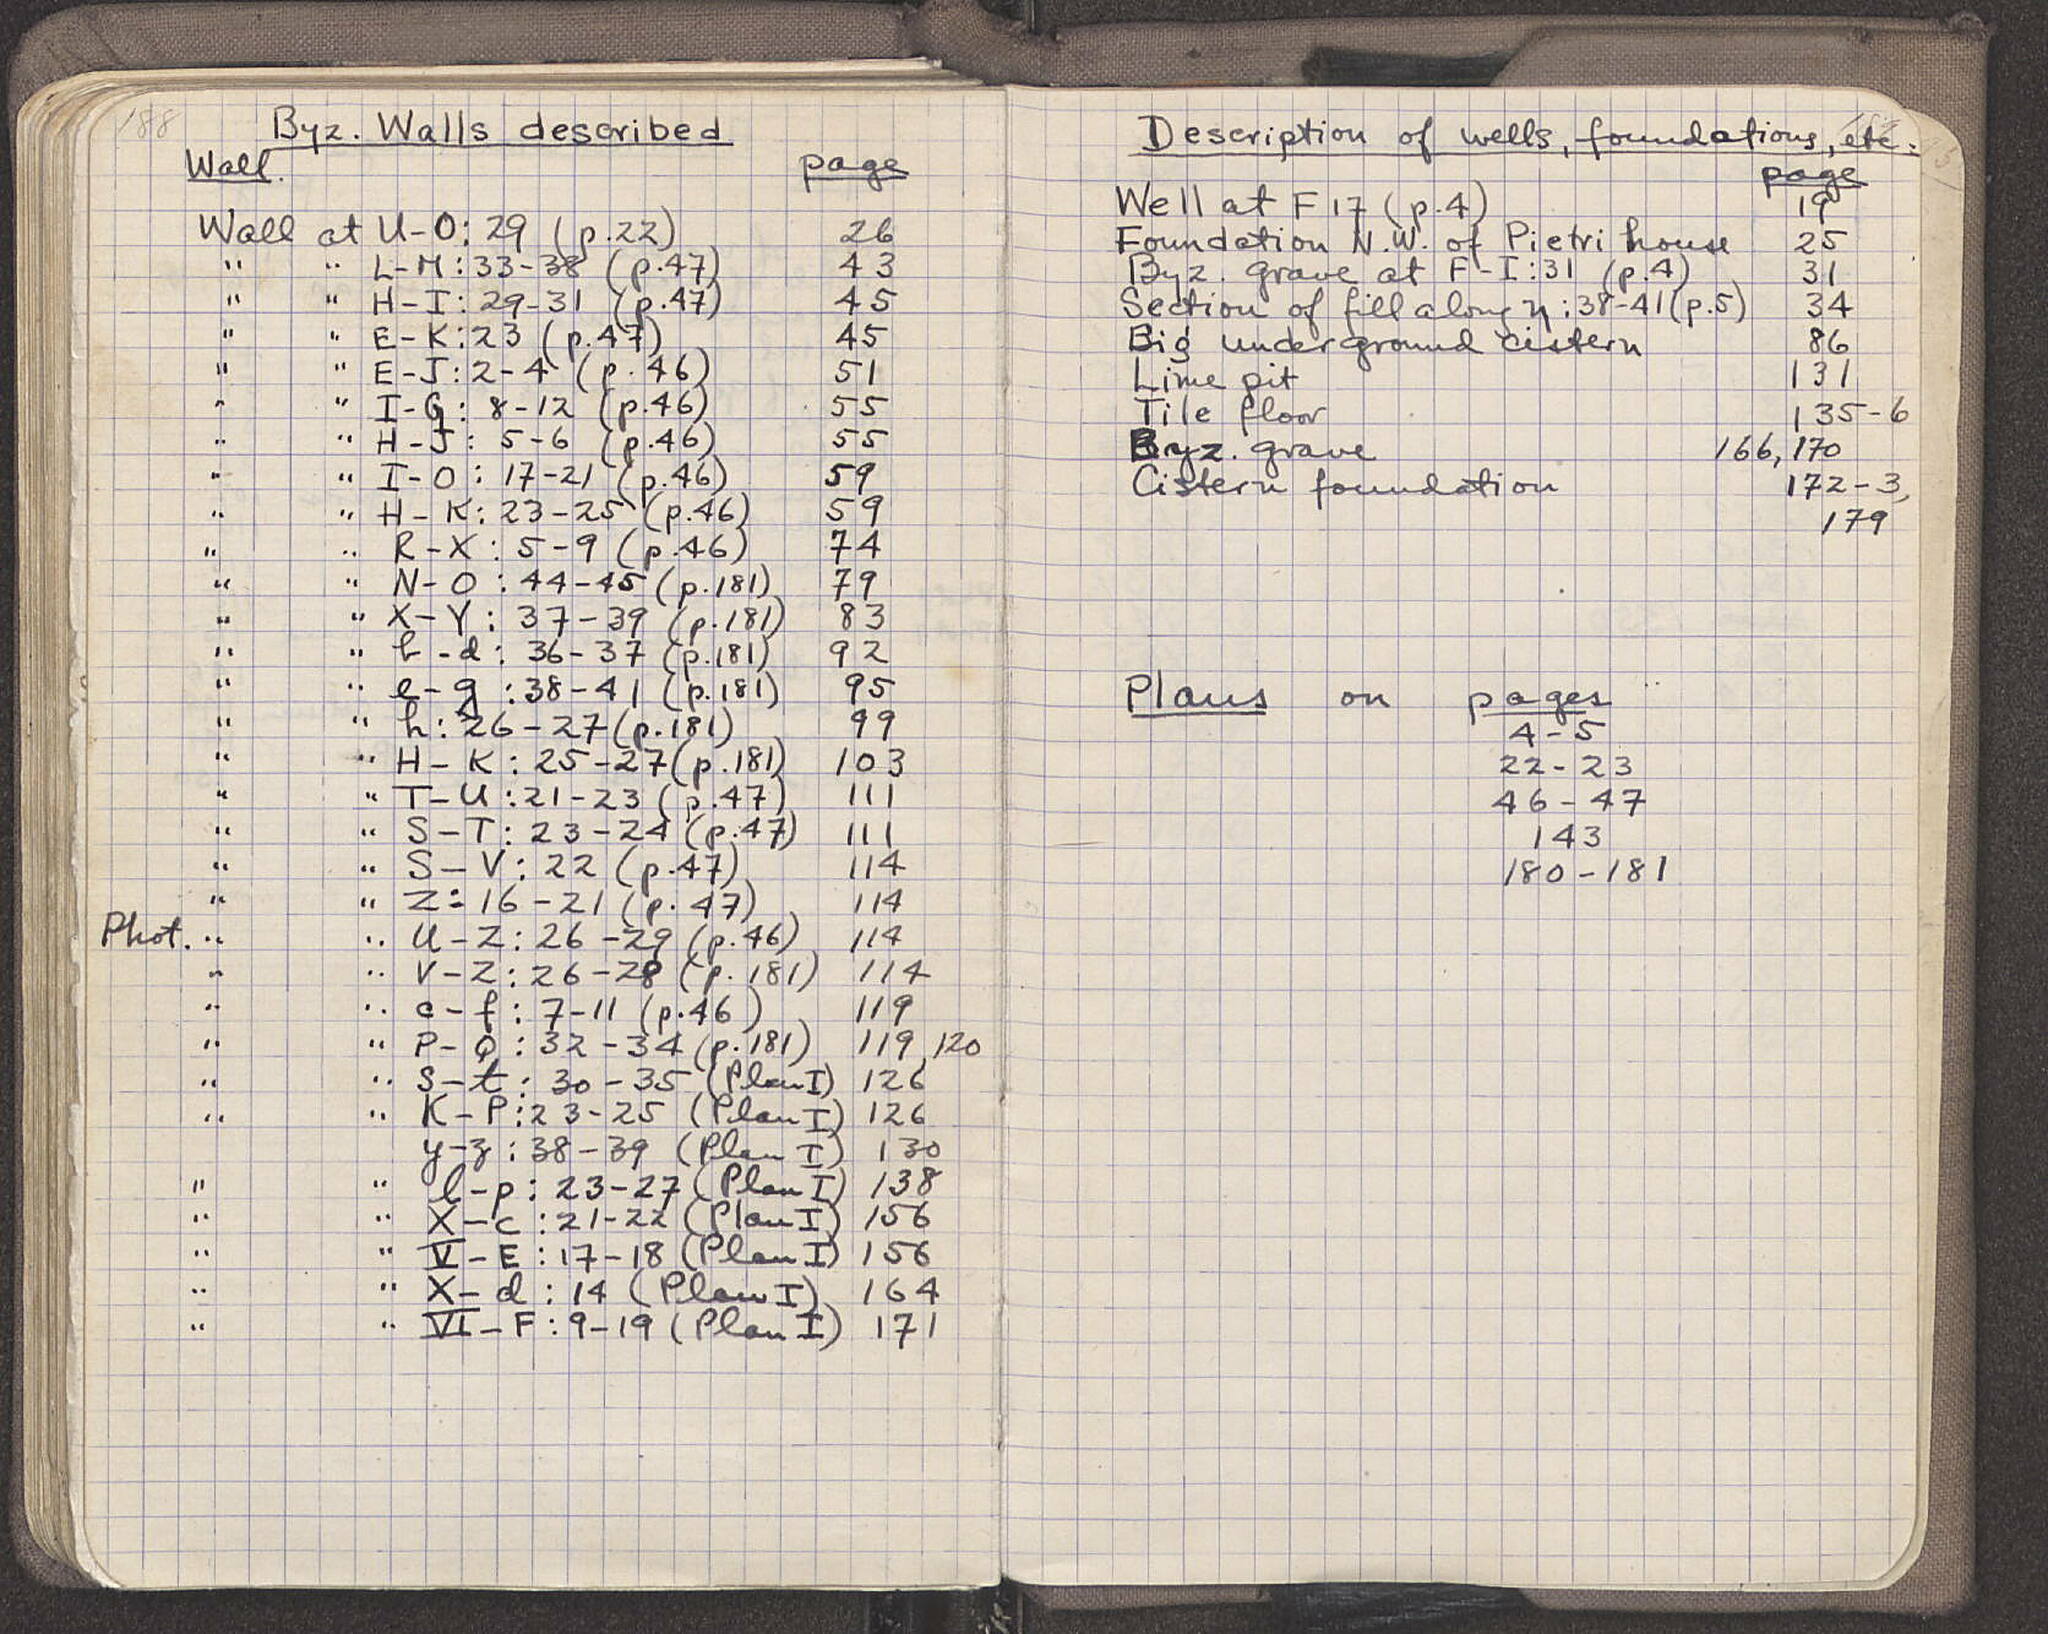 188
Byz. Walls described
Wall. page
Wall at U-O: 29 (p.22) 26
" " L-M: 33-38 (p.47) 43
" " H-I: 29-31 (p.47) 45
" " E-K: 23 (p.47) 45
" " E-J: 2-4 (p.46) 51
" " I-G: 8-12 (p.46) 55
" " H-J: 5-6 (p.46) 55
" " I-O: 17-21 (p.46) 59
" " H-K: 23-25 (p.46) 59
" " R-X: 5-9 (p.46) 74
" " N-O: 44-45 (p.181) 79
" " X-Y: 37-39 (p.181) 83
" " b-d: 36-37 (p.181) 92
" " e-g: 38-41 (p.181) 95
" " h: 26-27 (p.181) 99
" " H-K: 25-27 (p.181) 103
" " T-U: 21-23 (p.47) 111
" " S-T: 23-24 (p.47) 111
" " S-V: 22 (p.47) 114
" " Z: 16-21 (p.47) 114
Phot. " " U-Z: 26-29 (p.46) 114
" " V-Z: 26-28 (p.181) 114
" " c-f: 7-11 (p.46) 119
" " P-Q: 32-34 (p.181) 119, 120
" " S-t: 30-35 (Plan I) 126
" " K-P: 23-25 (Plan I) 126
y-z: 38-39 (Plan I) 130
" " l-p: 23-27 (Plan I) 138
" " X-c: 21-22 (Plan I) 156
" " V-E: 17-18 (Plan I) 156
" " X-d: 14 (Plan I) 164
" " VI-F: 9-19 (Plan I) 171
Description of wells, foundations, etc.
page
Well at F 17 (p.4) 19
Foundation N.W. of Pietri house 25
Byz. grave at F-I: 31 (p.4) 31
Section of fill along η: 38-41 (p.5) 34
Big underground cistern 86
Lime pit 131
Tile floor 135-6
Byz. grave 166, 170
Cistern foundation 172-3,
179
Plans on pages
4-5
22-23
46-47
143
180-181